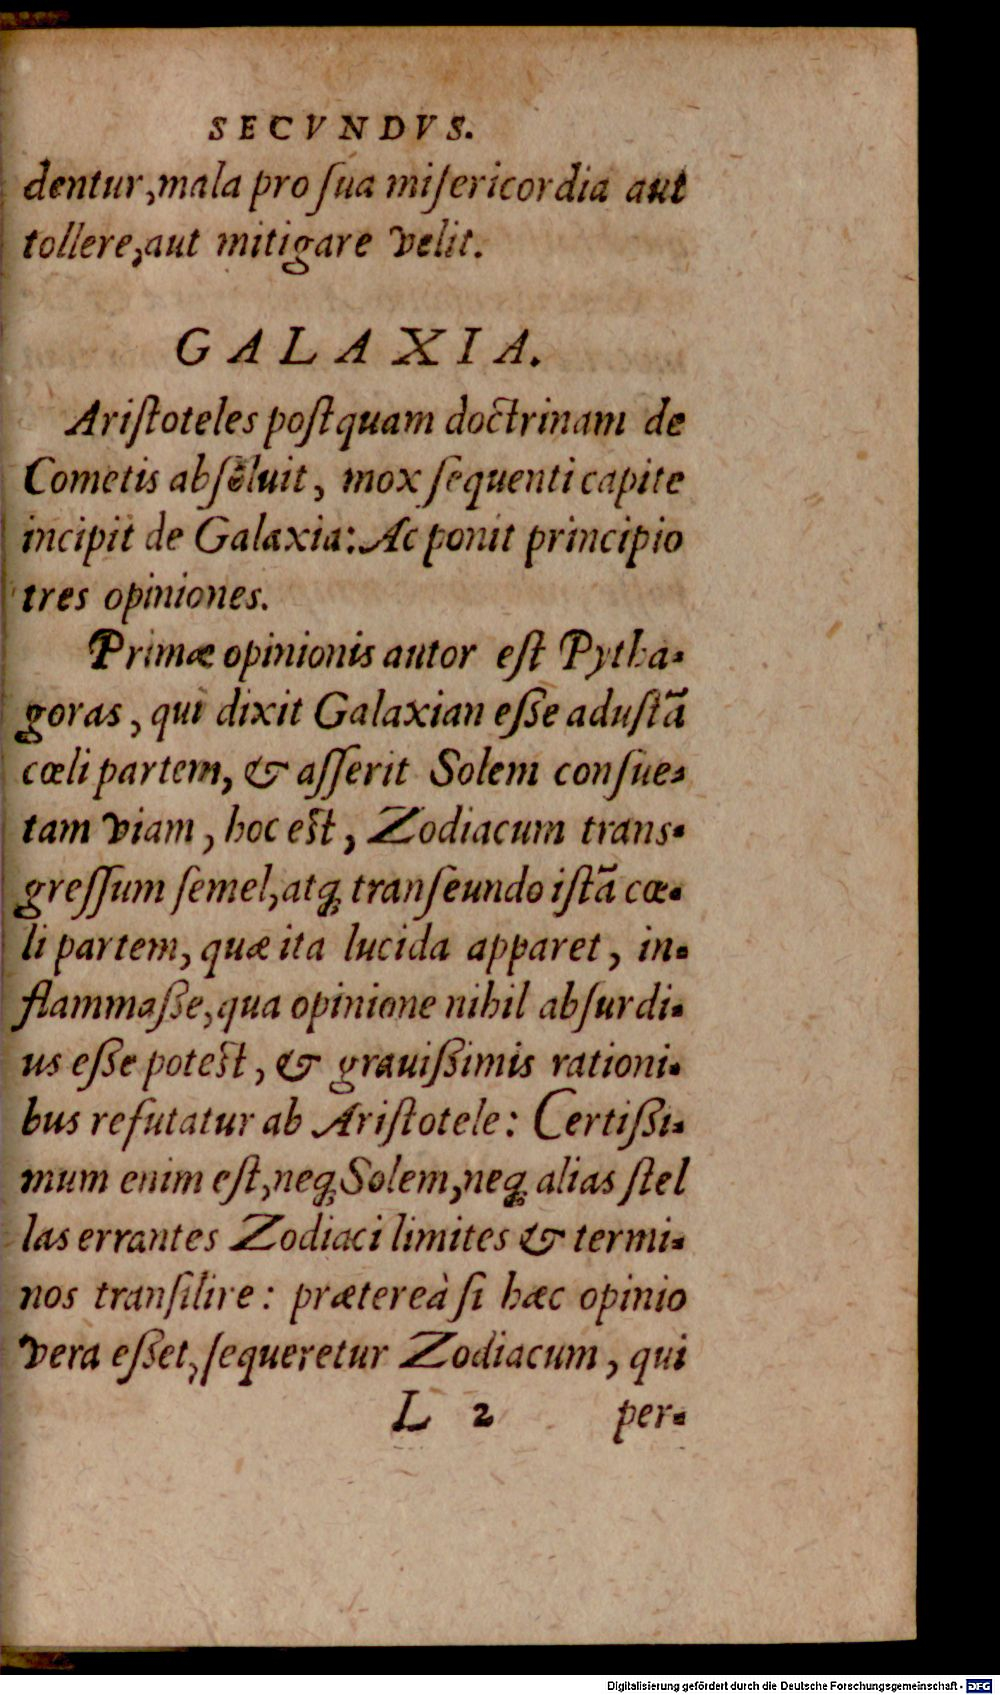 SECVNDVS.
dentur, mala pro ſua miſericordia aut
tollere, aut mitigare velit.
GALAXIA.
Ariſtoteles poſtquam doctrinam de
Cometis abſoluit, mox ſequenti capite
incipit de Galaxia: Ac ponit principio
tres opiniones.
Primæ opinionis autor eſt Pytha-
goras, qui dixit Galaxian eſſe aduſtã
cœli partem, & aſſerit Solem conſue-
tam viam, hoc eſt, Zodiacum trans-
greſſum ſemel, atq; tranſeundo iſtã cœ-
li partem, quæ ita lucida apparet, in-
flammaſſe, qua opinione nihil abſurdi-
us eſſe poteſt, & grauiſſimis rationi-
bus refutatur ab Ariſtotele: Certiſſi-
mum enim eſt, neq; Solem, neq; alias ſtel
las errantes Zodiaci limites & termi-
nos tranſilire: prætereà ſi hæc opinio
vera eſſet, ſequeretur Zodiacum, qui
L 2 per-
Digitalisierung gefördert durch die Deutsche Forschungsgemeinschaft - DFG